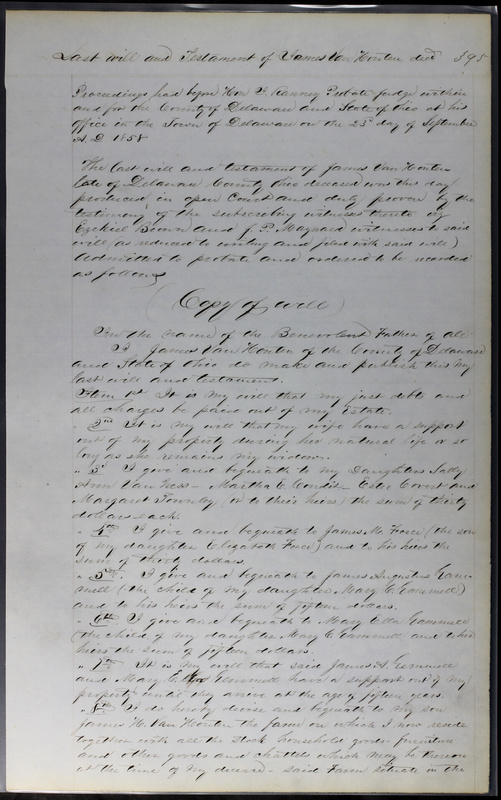 Last will and Testament of James Van Houten decd 395
Proceedings had before Hon T. Ranney Probate Judge within
and for the County of Delaware and State of Ohio at his
office in the Town of Delaware on the 25th day of September
A.D. 1858
The last will and testament of James Van Houten
late of Delaware County Ohio deceased was this day
produced in open Court and duly proven by the
testimony of the subscribing witnesses thereto
Ezekiel Brown and J. P. Maynard witnesses to said
will (as reduced to writing and filed with said will)
Admitted to probate and ordered to be recorded
as follows
(Copy of will)
In the name of the Benevolent Father of all
I James Van Houten of the County of Delaware
and State of Ohio do make and publish this my
last will and testament.
Item 1st It is my will that my just debts and
all charges be paid out of my Estate.
" 2nd It is my will that my wife have a support
out of my property during her natural life or so
long as she remains my widow.
" 3d I give and bequeath to my Daughters Sally
Ann Van Ness - Martha C and
Margaret Townley (or to their heirs) the sum of thirty
dollars each.
" 4th I give and bequeath to James M. Force (the son
of my daughter Elizabeth Force) and to his heirs the
sum of thirty dollars.
" 5th. I give and bequeath to James Augustus Gam-
mell (the child of my daughter Mary C Gammell)
and to his heirs the sum of fifteen dollars.
" 6th I give and bequeath to Mary Ella Gammell
(the child of my daughter Mary C Gammell and to her
heirs the sum of fifteen dollars.
" 7th It is my will that said James A. Gammell
and Mary E. Gammell have a support out of my
property until they arrive at the age of fifteen years.
" 8th I do hereby devise and bequeath to my son
James H. Van Houten the farm on which I now reside
together with all the stock household goods furniture
and other goods and chattels which may be thereon
at the time of my decease - said Farm situate in the